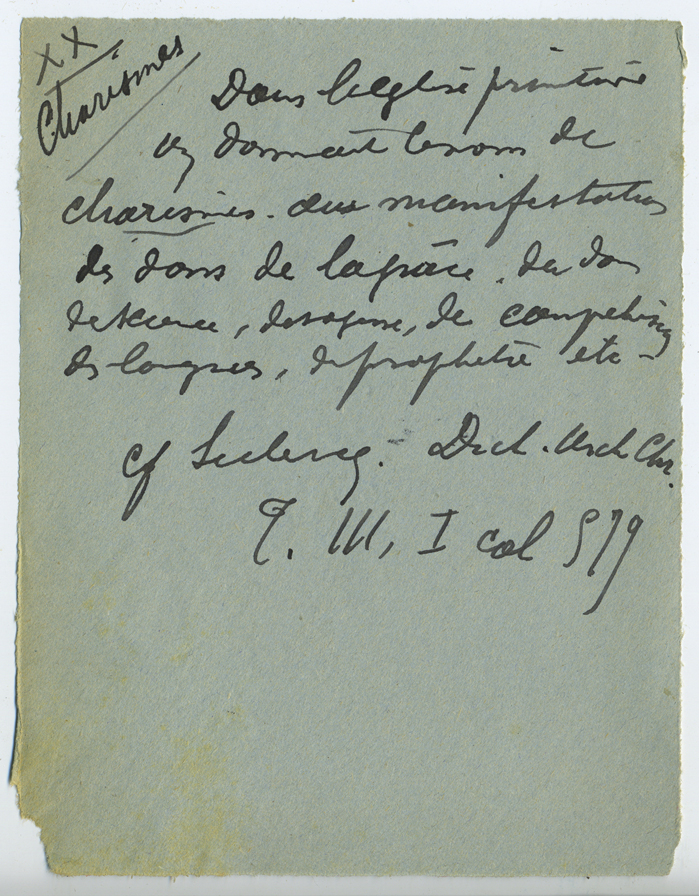 XX
Charismes
Dans l'église primitive
on donnait le nom de
charismes aux manifestations
des dons de la grâce, du don
de science, de sagesse, de compréhension
des langues, de prophétie etc -
cf Leclercq. Dict. Arch Chr.
T. III, I col 579